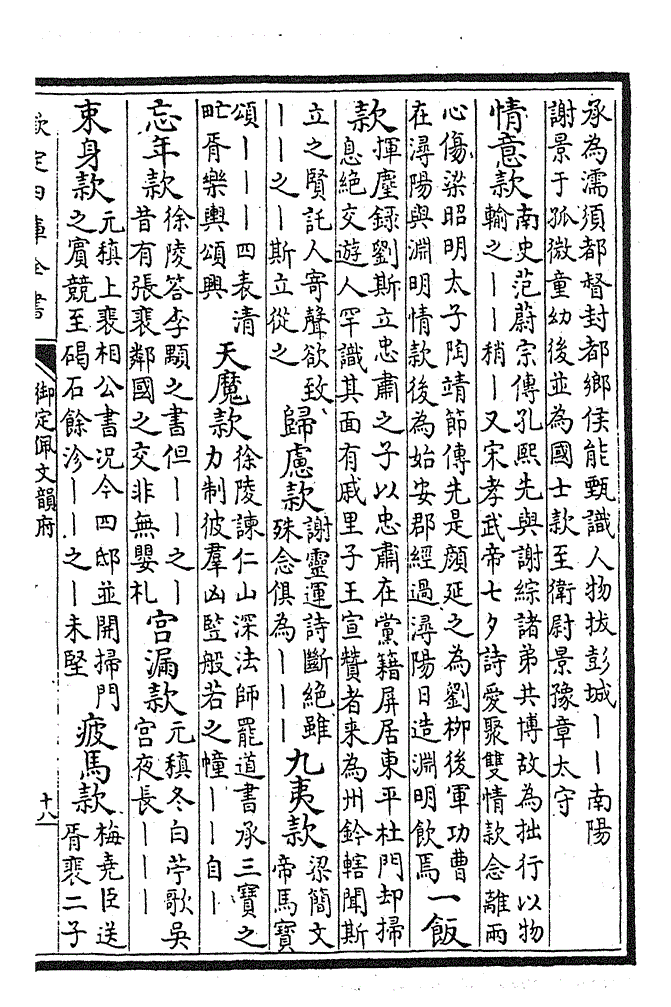 承為濡須都督封都鄉侯能甄識人物拔彭城丨丨南陽
謝景于孤微童幼後並為國士款至衛尉景豫章太守
情意款
南史范蔚宗傳孔熙先與謝綜諸弟共博故為拙行以物
輸之丨丨稍丨又宋孝武帝七夕詩愛聚雙情款念離兩
心傷梁昭明太子陶靖節傳先是顏延之為劉柳後軍功曹
在潯陽與淵明情款後為始安郡經過潯陽日造淵明飲焉
一飯
款
揮麈錄劉斯立忠肅之子以忠肅在黨籍屏居東平杜門却掃
息絶交遊人罕識其面有戚里子王宣贊者来為州鈐轄聞斯
立之賢託人寄聲欲致丨
丨丨之丨斯立從之
歸慮款
謝靈運詩斷絶雖
殊念俱為丨丨丨
九夷款
梁簡文
帝馬寶
頌丨丨丨四表清
甿胥樂輿頌興
天魔款
徐陵諫仁山深法師罷道書承三寶之
力制彼羣凶豎般若之幢丨丨自丨
忘年款
徐陵答李顒之書但丨丨之丨
昔有張裴鄰國之交非無嬰札
宫漏款
元稹冬白苧歌吳
宫夜長丨丨丨
束身款
元稹上裴相公書況今四邸並開掃門
之賓競至碣石餘沴丨丨之丨未堅
疲馬款
梅堯臣送
胥裴二子
欽定四庫全書
御定佩文韻府
十八